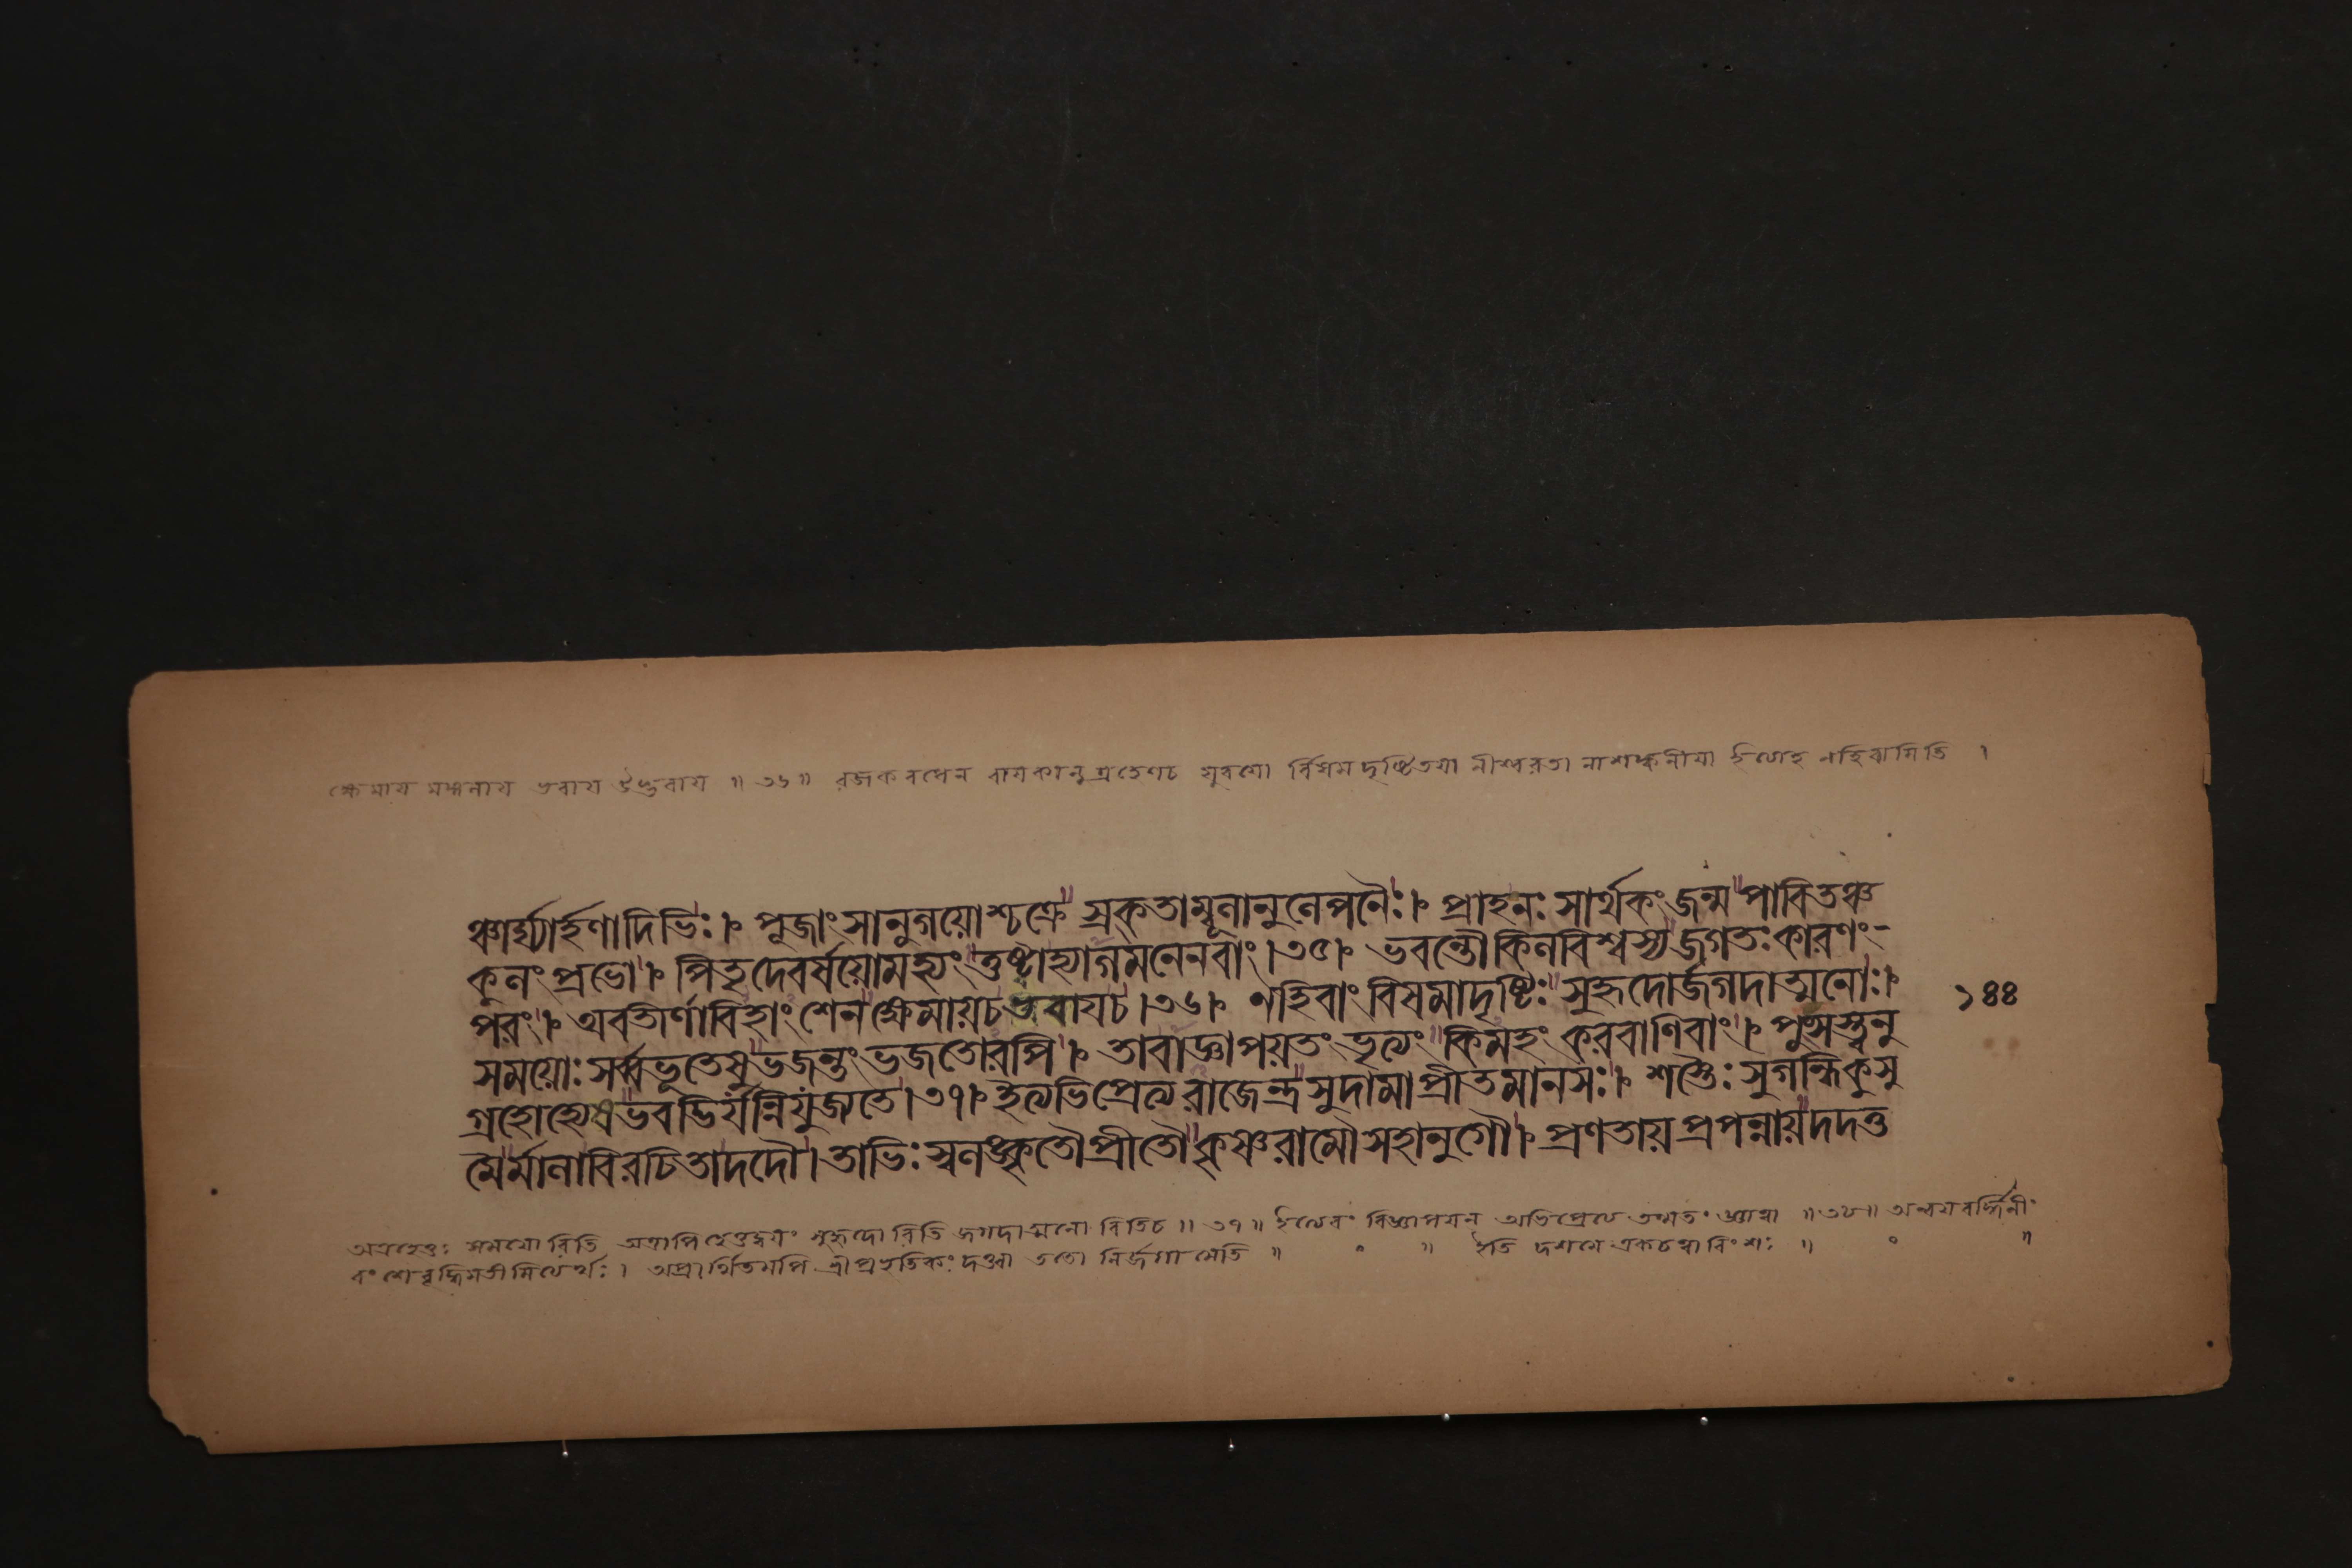 ক্ষেমায মঙ্গলায ভবায উদ্ভবায ॥ ৩৬ ॥ রজকবধেন বাযকানুগ্রহেণচ যুবযো র্বিষমদৃষ্টিতযা নীশ্বরতা নাশঙ্কনীযা ইত্যাহ নহিবামিতি ।
ঞ্চার্ঘ্যার্হণাদিভিঃ । পূজাং সানুগয়োশ্চক্রে স্রক্তাম্বূলানুলেপনৈঃ । প্রাহনঃ সার্থকং জন্ম পাবিতঞ্চ
কুলং প্রভো । পিতৃদেবর্ষয়োমহ্যং তুষ্টাহ্যাগমনেনবাং । ৩৫ । ভবন্তৌ কিলবিশ্বস্য জগতঃ কারণং-
পরং । অবতীর্ণাবিহাং শেন ক্ষেমায়চ ভবাযচ । ৩৬ । নহিবাং বিষমাদৃষ্টিঃ সুহৃদোর্জগদাত্মনোঃ ।
সময়োঃ সর্ব্বভূতেষু ভজন্তং ভজতোরপি । তাবাজ্ঞাপয়তং ভৃত্যং কিমহং করবাণিবাং । পুংসস্ত্বনু
গ্রহোহ্যেষ ভবদ্ভির্যন্নিযুজ্যতে । ৩৭ । ইত্যভিপ্রেত্য রাজেন্দ্র সুদামা প্রীতমানসঃ । শস্তৈঃ সুগন্ধিকুসু
মৈর্মালাবিরচিতাদদৌ । তাভিঃ স্বলঙ্কৃতৌ প্রীতৌ কৃষ্ণরামৌ সহানুগৌ । প্রণতায় প্রপন্নায় দদতু
১৪৪
অত্রহেতুঃ সমযো রিতি অত্রাপি হেতুদ্বযং সুহৃদো রিতি জগদাত্মনো রিতিচ ॥ ৩৭ ॥ ইত্যেবং বিজ্ঞাপযন্ অভিপ্রেত্য তন্মতং জ্ঞাত্বা ॥ ৩৮ ॥ অন্বযবর্দ্ধিনীং
বংশেবৃদ্ধিমতীমিত্যর্থঃ । অপ্রার্থিতমপি শ্রীপ্রভৃতিকং দত্ত্বা ততো নির্জগামেতি ॥ ০ ॥ ইতি দশমে একচত্বারিংশঃ ॥ ০ ॥